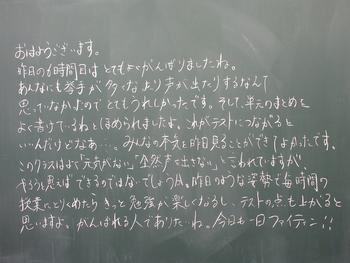 おはようございます。
昨日の6時間目はとてもよくがんばりましたね。
あんなにも挙手が多くなったり声が出たりするなんて
思っていなかったのでとてもうれしかったです。そして、単元のまとめを
よく書けているねとほめられましたよ。これがテストにつながると
いいんだけどなあ…。みんなの本気を昨日見ることができてよかったです。
このクラスはよく「元気がない」「全然声を出さない」と言われていますが、
やろうと思えばできるのではないでしょうか。昨日のような姿勢で毎時間の
授業にとりくめたらきっと勉強が楽しくなるし、テストの点も上がると
思いますよ。がんばれる人でありたいね。今日も一日ファイティン!!